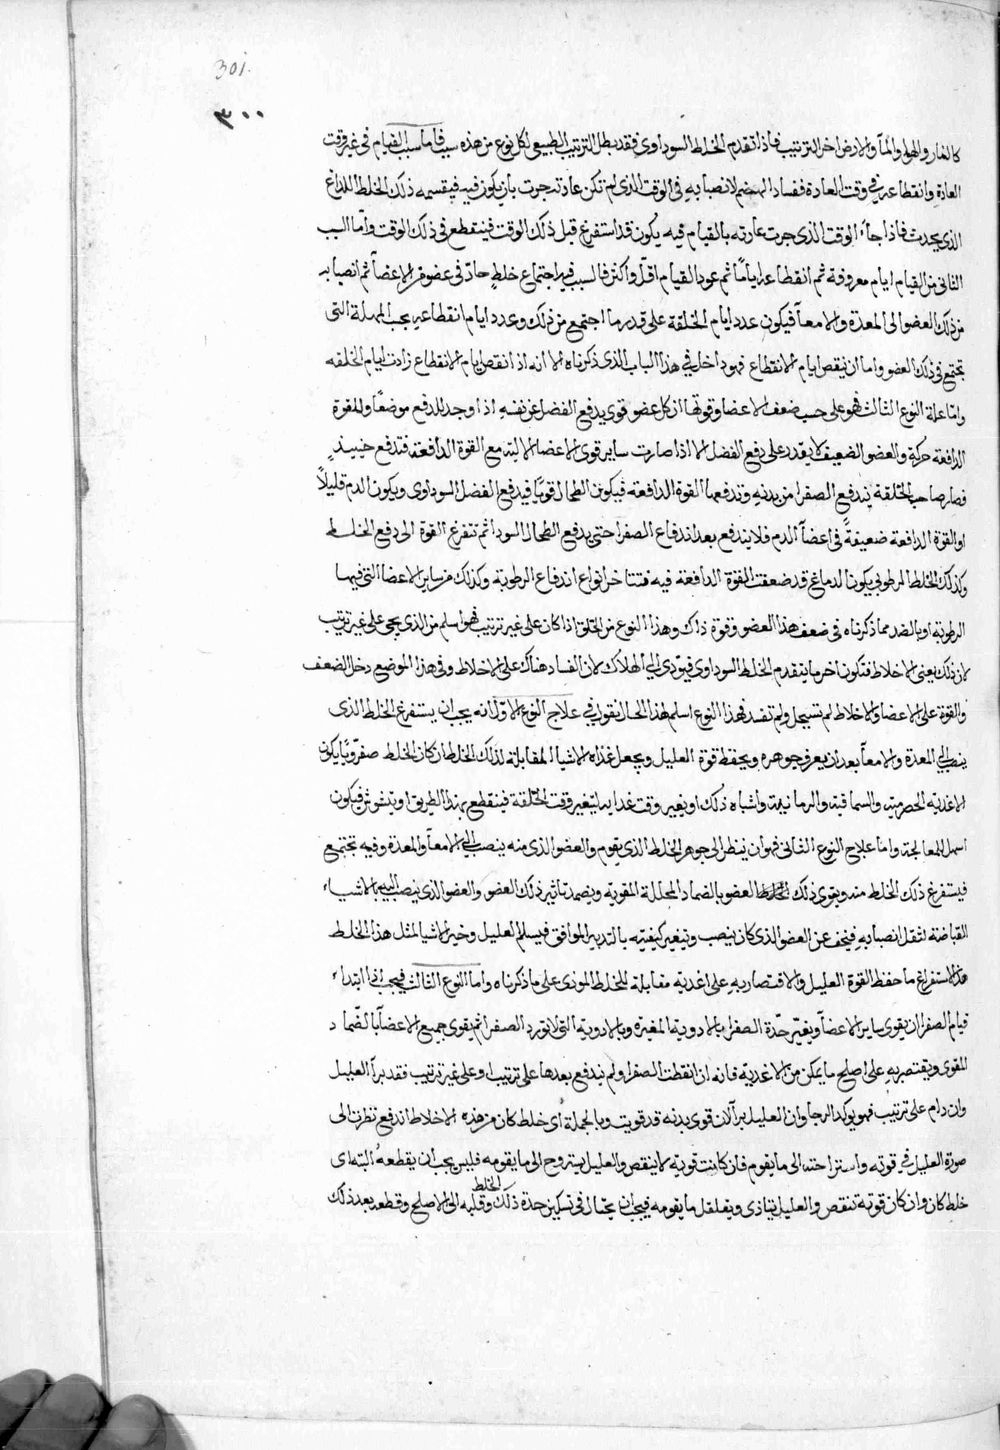 301.
٣٠٠
كالنار والهوا والمآ والارض اخر الترتيب فاذا تقدم الخلط السوداوى فقد بطل الترتيب الطبيعى لكل نوع من هذه سبب فاما سبب القيام فى غير وقت
العادة وانقطاعه فى وقت العادة ففساد الهضم لانصبابه فى الوقت الذى لم تكن عادته جرت بان يكون فيه فيقسمه ذلك الخلط للذاع
الذى يحدث فاذا جآء الوقت الذى جرت عادته بالقيام فيه يكون قد استفرغ قبل ذلك الوقت فينقطع فى ذلك الوقت وأما السبب
الثانى من القيام ايام معروفة ثم انقطاعه اياما ثم عود القيام اقل واكثر فالسبب فيه اجتماع خلط حاد فى عضو من الاعضآ ثم انصبابه
من ذلك العضو الى المعدة والامعآ فيكون عدد ايام الخلقة على قدر ما اجتمع من ذلك وعدد ايام انقطاعه بحسب المهلة التى
تجتمع فى ذلك العضو واما ان ينقص ايام الانقطاع فهو داخل فى هذا الباب الذى ذكرناه الا انه اذا نقص ايام الانقطاع زادت ايام الخلفه
واما علة النوع الثالث فهو على حسب ضعف الاعضا وقوتها از كل عضو قوى يدفع الفضل عن نفسه اذا وجد للدفع موضعًا وللقوة
الدافعة حركة والعضو الضعيف لا يقدر على دفع الفضل الا اذا صارت ساير قوى الاعضا الالية مع القوة الدافعة فتدفع حينيذ
فصار صاحب الخلقة يندفع الصفرا من بدنه وتدفعها القوة الدافعة فيكون الطحال قويا فيدفع الفضل السوداوى ويكون الدم قليلاً
او القوة الدافعة ضعيفةً فى اعضآ الدم فلا يندفع بعد اندفاع الصفرا حتى يدفع الطحال السودا ثم تتفرغ القوة الى دفع الخلط
وكذلك الخلط الرطوبى يكون الدماغ قد ضعفت القوة الدافعة فيه فتتاخر انواع اندفاع الرطوبة وكذلك من ساير الاعضا التى فيها
الرطوبة او بالضد مما ذكرناه فى ضعف هذا العضو وقوة ذاك وهذا النوع من الخلق اذا كان على غير ترتيب فهو اسلم من الذى يجى على غير ترتيب
لان ذلك يعنى الاخلاط فتكون اخر ما يتقدم الخلط السوداوى فيودى الى الهلاك لان الفساد هناك على الاخلاط وفى هذا الموضع دخل الضعف
والقوة على الاعضا والاخلاط لم تستحيل ولم تفسد فهذا النوع اسلم لهذا الحال نقول فى علاج النوع الاول انه يجب ان يستفرغ الخلط الذى
ينصب الى المعدة والامعآ بعد ان يعرف جوهره ويحفظ قوة العليل ويجعل غذاه الاشيا المقابلة لذلك الخلط ان كان الخلط صفرويا يكون
الاغديه الحصرميه والسماقيه والرمانية واشباه ذلك او يغير وقت غدايه ليتغير وقت الخلقة فينقطع بهذا الطريق او يتشوش فيكون
اسهل للمعالجة واما علاج النوع الثانى فهو ان ينظر الى جوهر الخلط الذى يقوم والعضو الذى منه ينصب الى الامعآ والمعدة وفيه تجتمع
فيستفرغ ذلك الخلط منه ويقوى ذلك العضو بالضماد المحللة المقوية ويضمد تاثير ذلك العضو والعضو الذى ينصب اليه بالاشيآء
القباضة لثقل انصبابه فيخف عن العضو الذى كان ينصب وتتغير كيفيته بالتدبير الموافق فيسلم العليل وخير الاشيا لمثل هذا الخلط
هذا الاستفراغ ما حفظ القوة العليل والاقتصار به على اغدية مقابلة للخلط الموذى على ما ذكرناه واما النوع الثالث فيجب فى ابتداء
قيام الصفرا ان يقوى ساير الاعضآ ويغير حدة الصفرا بالادوية المغيرة وبالادوية التى لا تورد الصفرا ثم يقوى جميع الاعضآ بالضماد
المقوى ويقتصر به على اصلح ما يمكن من الاغدية فانه ان انقطت الصفرا ولم يندفع بعدها على ترتيب او على غير ترتيب فقد برآ العليل
وان دام على ترتيب فهو يوكد الرجا وان العليل برآ لان قوى بدنه قد قويت وبالجملة اى خلط كان من هذه الاخلاط اندفع نظرت الى
صورة العليل فى قوته واستراحته الى ما يقوم فان كانت قوته لا ينقص والعليل يستروح الى ما يقومه فليس يجب ان يقطعه البته اى
خلط كان وان كان قوته تنقص والعليل يتاذى ويقلقل ما يقومه فيجب ان يحتال فى تسكين حدة ذلك الخلط وقلبه الى الاصلح وقطعه بعد ذلك